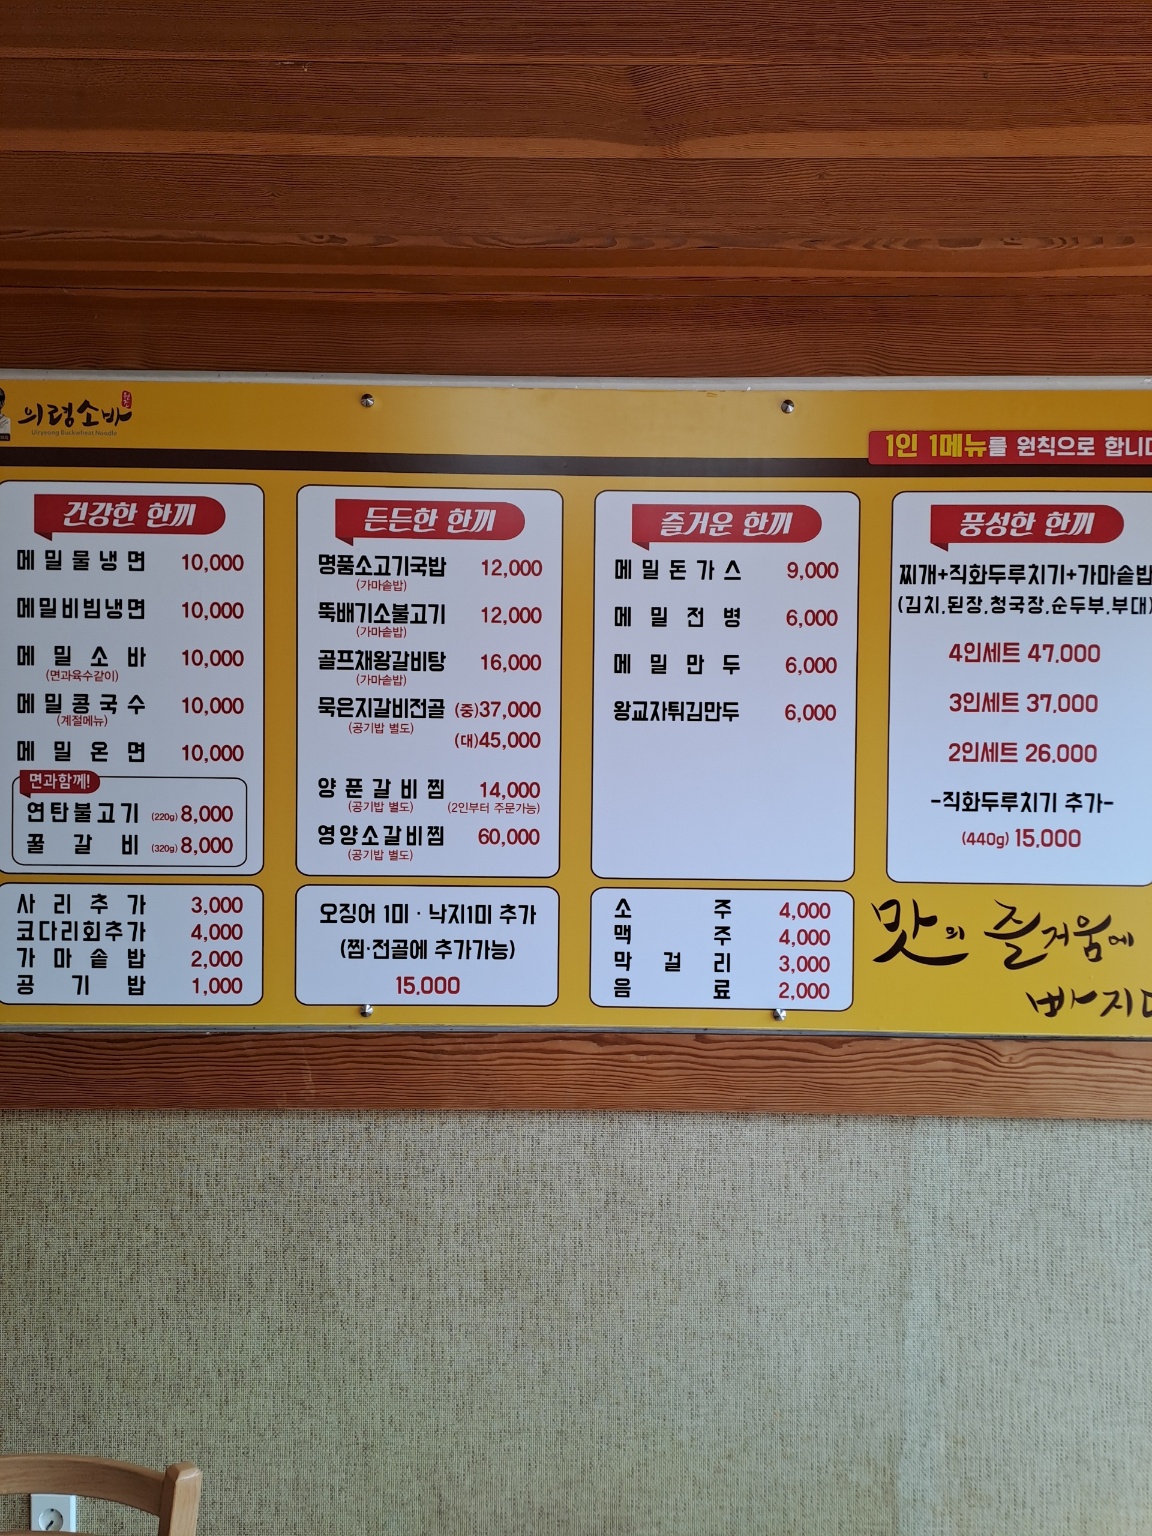 의령소바
Uiryeong Buckwheat Noodle
1인 1메뉴를 원칙으로 합니다
건강한 한끼
메밀물냉면 10,000
메밀비빔냉면 10,000
메밀소바 10,000
(면과육수같이)
메밀콩국수 10,000
(계절메뉴)
메밀온면 10,000
면과함께!
연탄불고기 (220g) 8,000
꿀갈비 (320g) 8,000
사리추가 3,000
코다리회추가 4,000
가마솥밥 2,000
공기밥 1,000
든든한 한끼
명품소고기국밥 12,000
(가마솥밥)
뚝배기소불고기 12,000
(가마솥밥)
골프채왕갈비탕 16,000
(가마솥밥)
묵은지갈비전골 (중)37,000
(공기밥 별도)
(대)45,000
양푼갈비찜 14,000
(공기밥 별도) (2인부터 주문가능)
영양소갈비찜 60,000
(공기밥 별도)
오징어 1미 · 낙지1미 추가
(찜·전골에 추가가능)
15,000
즐거운 한끼
메밀돈가스 9,000
메밀전병 6,000
메밀만두 6,000
왕교자튀김만두 6,000
소주 4,000
맥주 4,000
막걸리 3,000
음료 2,000
풍성한 한끼
찌개+직화두루치기+가마솥밥
(김치,된장,청국장,순두부,부대)
4인세트 47,000
3인세트 37,000
2인세트 26,000
-직화두루치기 추가-
(440g) 15,000
맛의 즐거움에
빠지다